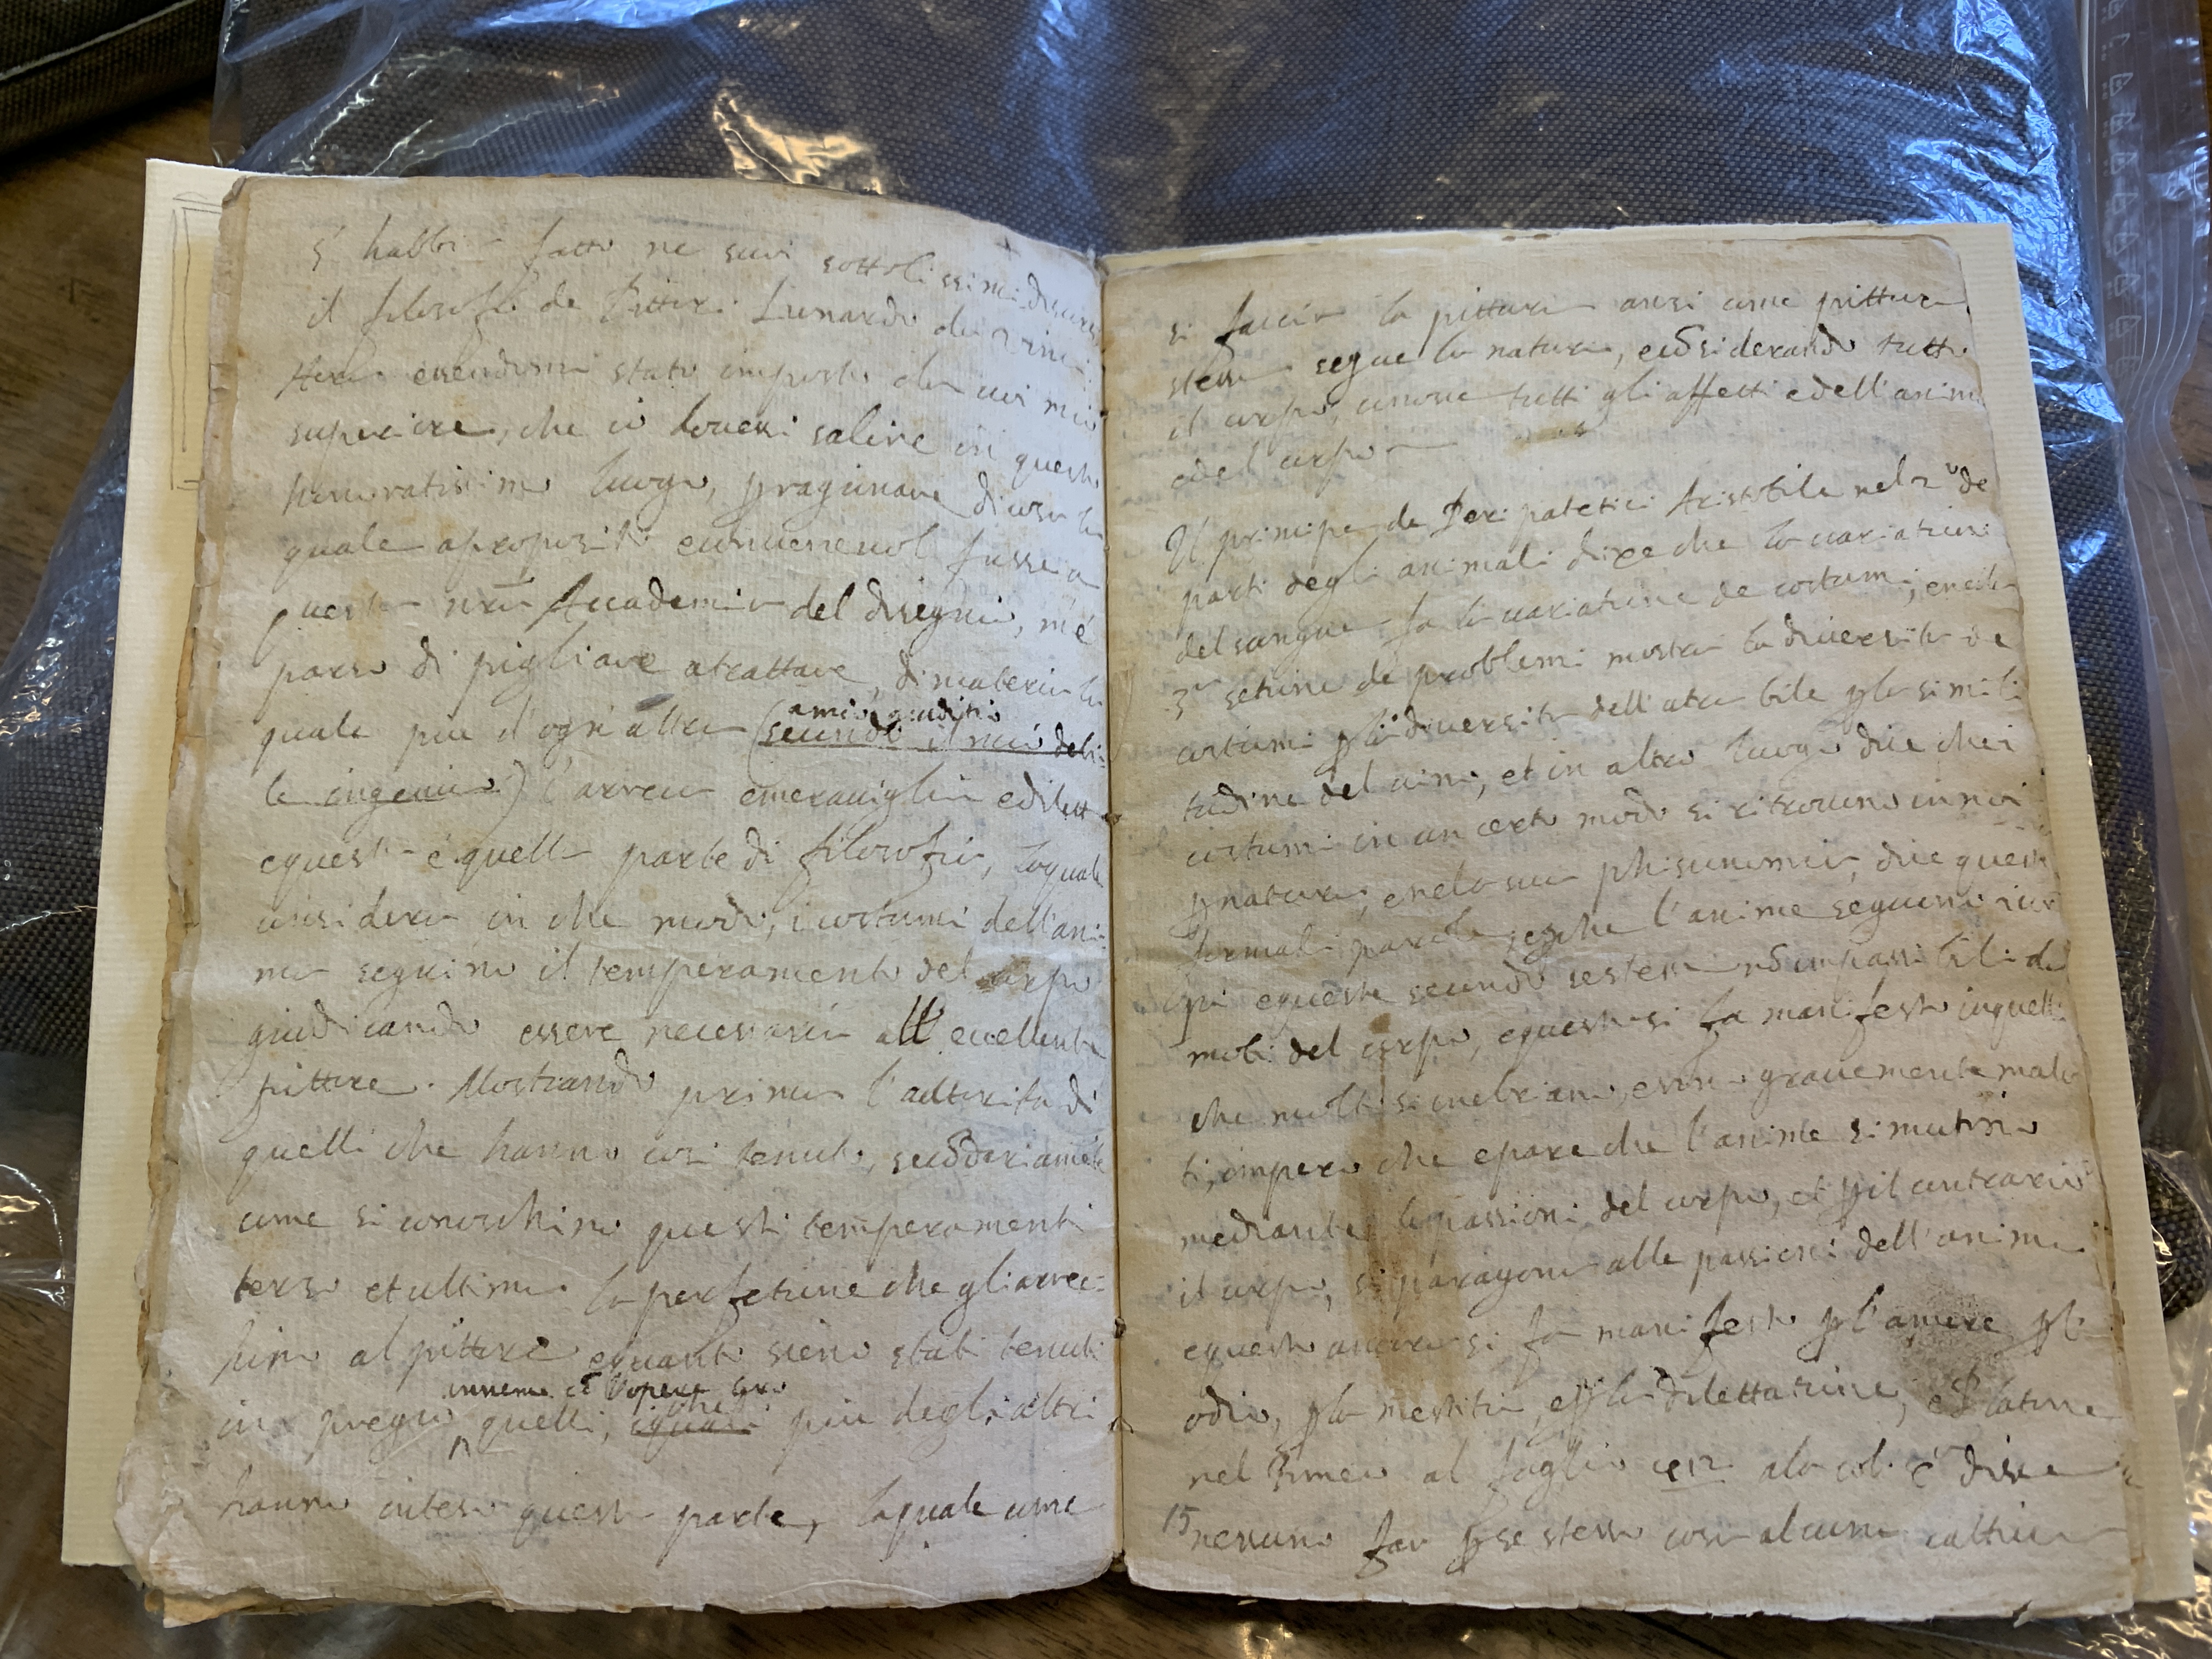 s'habbia fatto ne suoi sottolissimi discorsi
il filosofo de Pittori Lunardo da Vinci
essendomi stato imposto da un mio
superiore, che io dovessi salire in questo
honoratissimo luogo, per ragionare di cosa la
quale a proposito fusse a
questa nr̃a Accademia del disegnio, m'è
parso di pigliare a trattare, di materia la
quale più d'ogni altra secondo il mio debi
a mio giuditio
le ingegnio arreca maraviglia e diletto
e questa è quella parte di filosofia, la quale
considera in che modo, i costumi dell'ani
mo seguino il temperamento del corpo
giudicando essere necessaria all'eccellente
pittore. Mostrando prima l'autorità di
quelli che hanno così tenuto, secondariamente
come si conoschino questi temperamenti
terzo et ultimo la perfetione che gli arrec
hino al pittore e quanti sieno stati tenuti
insieme e l'opere sue
in pregio quelli, che più degl'altri
hanno inteso questa parte, la quale come
si faccia la pittura anzi come pittura
stessa segue la natura, considerando tutto
il corpo, comuove tutti gli affetti e dell'animo
e del corpo
Il principe de Peripatetici Aristotile nel 2 de
parti degli animali dice che la variatione
del sangue fa la variatione de costumi, e nella
setione de problemi mostra la diversità de
costumi per la diversità dell'atra bile per simili
tudine del vino, et in altro luogo dice che i
costumi in un certo modo si ritrovano in noi
per natura, e nel suo phisonomia, dice queste
formali parole, perche l'anime seguono i cor
pi e queste secondo se stesse non sono impassibili da
moti del corpo, e questo si fa manifesto in quelli
che molto si inebriano, e son gravemente mala
ti, impero che e pare che l'anime si mutino
mediante le passioni del corpo, e poi il contrario
il corpo, si paragona alle passioni dell'animo
e questo ancora si fa manifesto per l'amore per
odio, per mestitia, e per dilettatione, et Catone
nel Timeo al foglio 252 alo col. è disse
nessuno